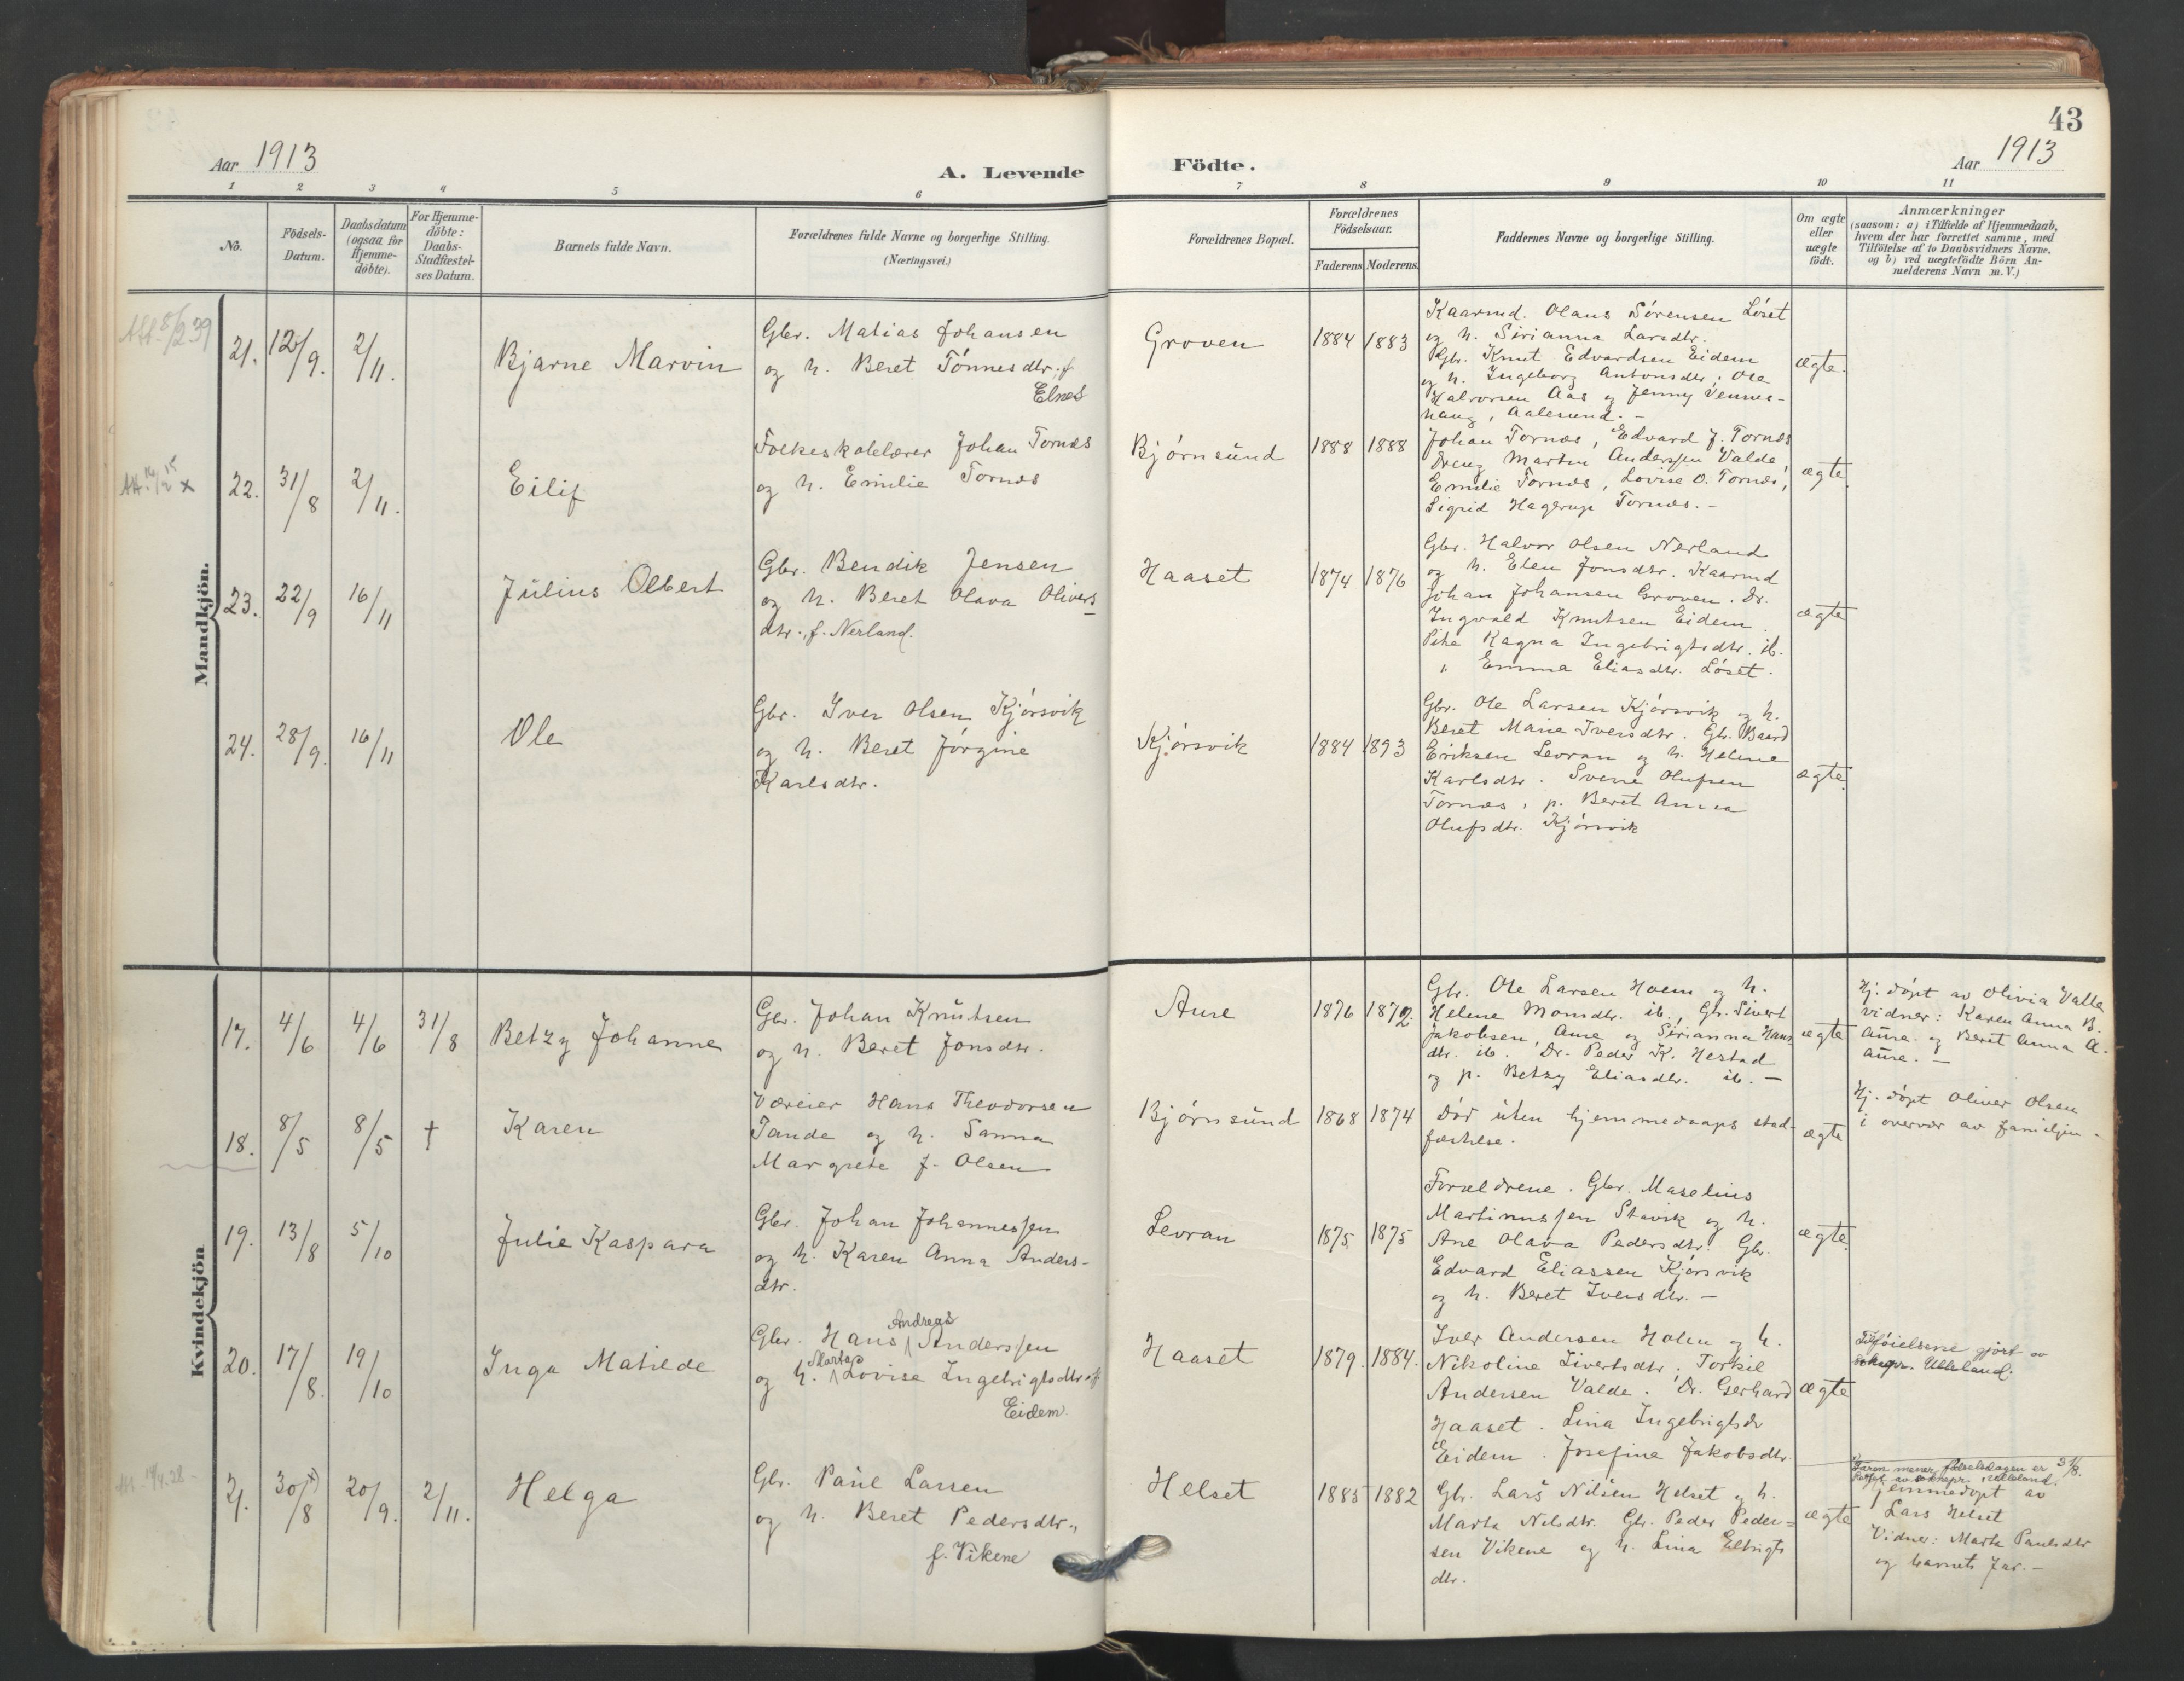 43
Aar 1913
A. Levende Födte.
Aar 1913
1 2 3 4 5 6 7 8 9 10 11
No.
Födsels-
Datum.
Daabsdatum
(ogsaa for
Hjemme-
döbte).
For Hjemme-
döbte:
Daabs-
Stadfæstel-
ses Datum.
Barnets fulde Navn.
Forældrenes fulde Navne og borgerlige Stilling.
(Næringsvei.)
Forældrenes Bopæl.
Forældrenes
Födselsaar.
Faderens. Moderens.
Faddernes Navne og borgerlige Stilling.
Om ægte
eller
uægte
födt.
Anmærkninger
(saasom: a) i Tilfælde af Hjemmedaab,
hvem der har forrettet samme, med
Tilföielse af to Daabsvidners Navne.
og b) ved uægtefödte Börn An-
melderens Navn m.V.)
Mandkjön.
Att. 8/2 39
21. 12/9. 2/11.
Bjarne Marvin
Gbr. Matias Johansen
og h. Beret Tönnesdtr. f.
Elnes
Groven
1884 1883
Kaarmd. Olaus Sörensen Löset
og h. Sirianna Larsdtr.
Gbr. Knut Edvardsen Eidem
og h. Ingeborg Antonsdtr, Ole
Halvorsen Aas og Jenny Vennes-
haug, Aalesund. -
ægte.
22. 31/8 2/11.
Eilif
Folkeskolelærer Johan Tornes
og h. Emilie Tornes
Bjørnsund
1888 1888
Johan Tornæs, Edvard J. Tornæs
Dreng Martin Anderssen Valde,
Emilie Tornæs, Lovise O. Tornæs,
Sigrid Hagerup Tornæs. -
ægte.
23. 22/9 16/11
Julius Olbert
Gbr. Bendik Jensen
og h. Beret Olava Olivers
dtr., f. Nerland.
Haaset
1874 1876
Gbr. Halvor Olsen Nerland
og h. Elen Jonsdtr. Kaarmd
Johan Johansen Groven. Dr.
Ingvald Knutsen Eidem.
Pike Ragna Ingebrigtsdtr. ib.
" Emma Eliasdtr. Löset.
ægte
24. 28/9. 16/11
Ole
Gbr. Iver Olsen Kjörsvik
og h. Beret Jörgine
Karlsdtr.
Kjörsvik
1884 1893
Gbr. Ole Larsen Kjörsvik og h.
Beret Marie Iversdtr. Gbr. Baard
Eriksen Levran og h. Helene
Karlsdtr. Sverre Olufsen
Tornæs, p. Beret Anna
Olufsdtr. Kjörsvik
ægte.
Kvindekjön
17. 4/6 4/6 31/8
Betzy Johanne
Gbr. Johan Knutsen
og h. Beret Jonsdtr.
Aure
1876 1872.
Gbr. Ole Larsen Hoem og h.
Helene Monsdtr. ib., Gbr. Sivert
Jakobsen, Aure og Sirianna Hans
dtr. ib. Dr. Peder K. Hestad
og p. Betzy Eliasdtr. ib. -
ægte
Hj. döpt av Olivia Valle
vidner: Karen Anna B.
Aure og Beret Anna A.
Aure. -
18. 8/5 8/5 †
Karen
Væreier Hans Theodorsen
Tande og h. Sanna
Margrete f. Olsen
Bjørnsund
1868 1874
Död uten hjemmedaaps stad-
fæstelse.
ægte
Hj. döpt Oliver Olsen
i overvær av familjen -
19. 13/8 5/10
Julie Kaspara
Gbr. Johan Johannessen
og h. Karen Anna Anders-
dtr.
Levran
1875 1875
Forældrene. Gbr. Maselius
Martinussen Stavik og h.
Ane Olava Pedersdtr. Gbr.
Edvard Eliassen Kjörsvik
og h. Beret Iversdtr. -
ægte.
20. 17/8. 19/10
Inga Matilde
Andreas
Gbr. Hans Anderssen
Marta
og h. Lovise Ingebrigtsdtr. f.
Eidem.
Haaset
1879. 1884.
Iver Andersen Holen og h.
Nikoline Sivertsdtr, Torkil
Andersen Valde. Dr. Gerhard
Haaset. Lina Ingebrigtsdr
Eidem. Josefine Jakobsdtr.
ægte
Tilföielsene gjört av
soknepr. Ulleland.
21. 30/8 x) 20/9. 2/11.
Helga
Gbr. Paul Larsen
og h. Beret Pedersdtr.,
f. Vikene
Helset
1885 1882
Gbr. Lars Nilsen Helset og h.
Marta Nilsdtr. Gbr. Peder Peder-
sen Vikene og h. Lina Elbrigts
dtr.
ægte
Faren mener födselsdagen er 31/8.
av soknepr. Ulleland.
Hjemmedöpt av
Lars Helset
Vidner: Marta Paulsdtr
og barnets far. -